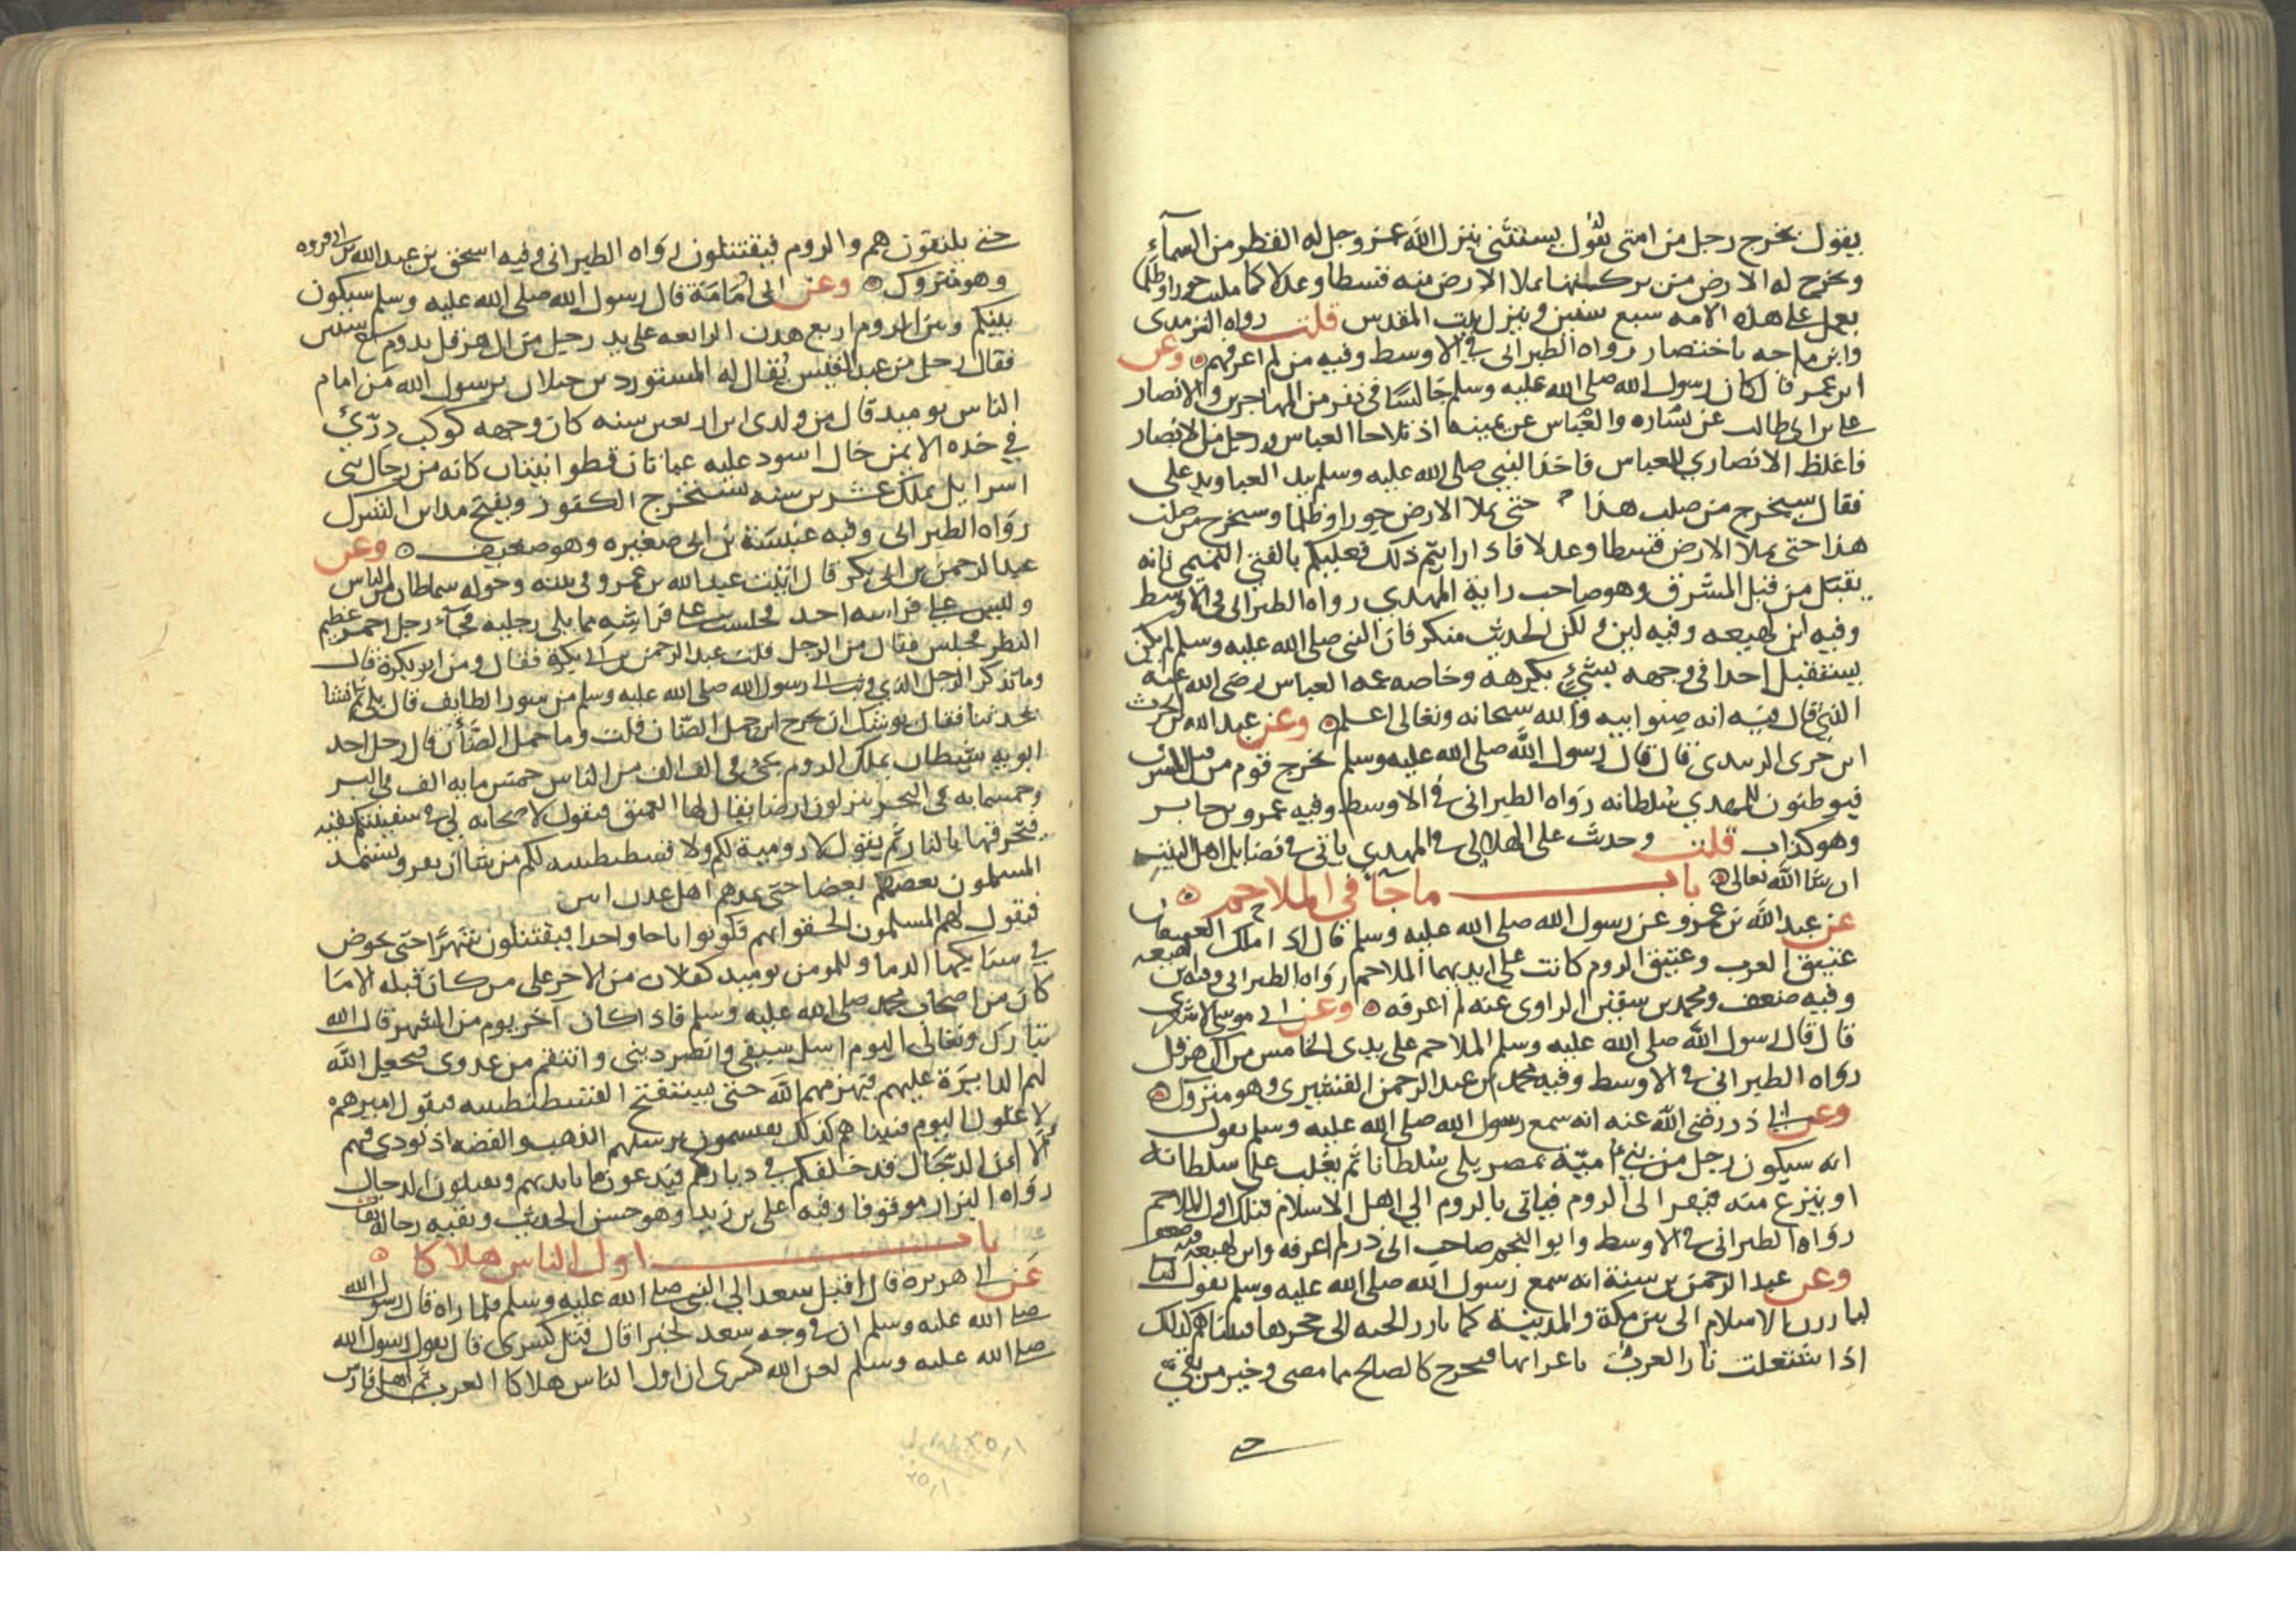 يقول يخرج رجل من امتي يقول بسنتي ينزل الله عز وجل له القطر من السماء
وتخرج له الارض من بركتها تملا الارض منه قسطا وعدلا كما ملئت جورا وظلما
يعمل على هذه الامه سبع سنين وينزل بيت المقدس قلت رواه الترمذي
وابن ماجه باختصار رواه الطبراني في الاوسط وفيه من لم اعرفهم وعن
ابن عمر قال كان رسول الله صلى الله عليه وسلم جالسا في نفر من المهاجرين والانصار
علي بن ابي طالب عن يساره والعباس عن يمينه اذ تلاحا العباس ورجل من الانصار
فاغلظ الانصاري للعباس فاخذ النبي صلى الله عليه وسلم بيد العباس ويد علي
فقال سيخرج من صلب هذا حتى يملا الارض جورا وظلما وسيخرج من صلب
هذا حتى يملا الارض قسطا وعدلا فاذا رايتم ذلك فعليكم بالفتى التميمي فانه
يقبل من قبل المشرق وهو صاحب راية المهدي رواه الطبراني في الاوسط
وفيه ابن لهيعه وفيه لين ولكن الحديث منكر فان النبي صلى الله عليه وسلم لم يكن
يستقبل احدا في وجهه بشيء يكرهه وخاصه عمه العباس رضي الله عنه
الذي قال فيه انه صنو ابيه والله سبحانه وتعالى اعلم وعن عبد الله بن الحرث
ابن جزى الزبيدي قال قال رسول الله صلى الله عليه وسلم يخرج قوم من قبل المشرق
فيوطئون للمهدي سلطانه رواه الطبراني في الاوسط وفيه عمرو بن جابر
وهو كذاب قلت وحدث علي الهلالي في المهدي ياتي في فضايل اهل البيت
ان شا الله تعالى باب ما جآ في الملاحم
عن عبد الله بن عمرو عن رسول الله صلى الله عليه وسلم قال اذا ملك العتيقان
عتيق العرب وعتيق الروم كانت على ايديهما الملاحم رواه الطبراني وفيه ابن لهيعه
وفيه ضعف ومحمد بن سفين الراوي عنه لم اعرفه وعن ابي موسى الاشعري
قال قال رسول الله صلى الله عليه وسلم الملاحم على يدي الخامس من ال هرقل
رواه الطبراني في الاوسط وفيه محمد بن عبد الرحمن القشيري وهو متروك
وعن ابي ذر رضي الله عنه انه سمع رسول الله صلى الله عليه وسلم يقول
انه سيكون رجل من بني امية بمصر يلي سلطانا ثم يغلب على سلطانه
او ينزع منه فيفر الى الروم فياتي بالروم الى اهل الاسلام فتلك اول الملاحم
رواه الطبراني في الاوسط وابو النجم صاحب ابي ذر لم اعرفه وابن لهيعه فيه ضعف
وعن عبد الرحمن بن سنة انه سمع رسول الله صلى الله عليه وسلم يقول
ليارزن الاسلام الى بين مكة والمدينة كما تارز الحيه الى جحرها فبينما هم كذلك
اذ اشتعلت نار العرب باعرابها فيخرج كالصالح مما مضى وخير من بقي
حتى
حتى يلتقون هم والروم فيقتتلون رواه الطبراني وفيه اسحق بن عبد الله بن ابي فروه
وهو متروك وعن ابي امامة قال رسول الله صلى الله عليه وسلم سيكون
بينكم وبين الروم اربع هدن الرابعه على يد رجل من ال هرقل يدوم سبع سنين
فقال رجل من عبد القيس يقال له المستورد بن جيلان يرسول الله من امام
الناس يوميد قال من ولدي ابن اربعين سنه كان وجهه كوكب دري
في خده الايمن خال اسود عليه عباتان قطوانيتان كانه من رجال بني
اسرايل يملك عشرين سنه يستخرج الكنوز ويفتح مداين الشرك
رواه الطبراني وفيه عنبسة بن ابي صغيره وهو ضعيف وعن
عبد الرحمن بن ابي بكر قال اتيت عبد الله بن عمرو في بيته وحوله سماطان من الناس
وليس على فراشه احد فجلست على فراشه مما يلي رجليه فجآء رجل احمر عظيم
البطن فجلس فقال من الرجل قلت عبد الرحمن بن ابي بكرة فقال ومن ابو بكرة قال
وما تذكر الرجل الذي وثب الى رسول الله صلى الله عليه وسلم من سور الطايف قال بلى ثم انشا
يحدثنا فقال يوشك ان يخرج ابن حمل الضان قلت وما حمل الضأن قال رجل احد
ابويه شيطان يملك الروم يجي في الف الف من الناس خمس مايه الف في البر
وخمسمايه في البحر ينزلون ارضا يقال لها العميق فيقول لاصحابه لي في سفينتكم بقيه
فيحرقها بالنار ثم يقول لا رومية لكم ولا قسطنطينيه لكم من شا ان يفر ويستمد
المسلمون بعضهم بعضا حتى يمدهم اهل عدن ابين
فيقول لهم المسلمون الحقوا بهم فكونوا باحا واحدا فيقتتلون شهرا حتى يخوض
في سنابكها الدما وللمومن يوميد كفلان من الاجر على من كان قبله الا ما
كان من اصحاب محمد صلى الله عليه وسلم فاذا كان آخر يوم من الشهر قال الله
تبارك وتعالى اليوم اسل سيفي وانصر ديني وانتقم من عدوي فيجعل الله
لهم الدايرة عليهم فيهزمهم الله حتى يستفتح القسطنطينيه فيقول اميرهم
لا غلول اليوم فبينا هم كذلك يقسمون بترسهم الذهب والفضه اذ نودي فيهم
الا ان الدجال قد خلفكم في دياركم فيدعون ما بايديهم ويقبلون الدجال
رواه البزار موقوفا وفيه علي بن زيد وهو حسن الحديث وبقيه رجاله ثقات
باب اول الناس هلاكا
عن ابي هريره قال اقبل سعد الى النبي صلى الله عليه وسلم فلما راه قال رسول الله
صلى الله عليه وسلم ان في وجه سعد لخبرا قال قتل كسرى قال يقول رسول الله
صلى الله عليه وسلم لعن الله كسرى ان اول الناس هلاكا العرب ثم اهل فارس